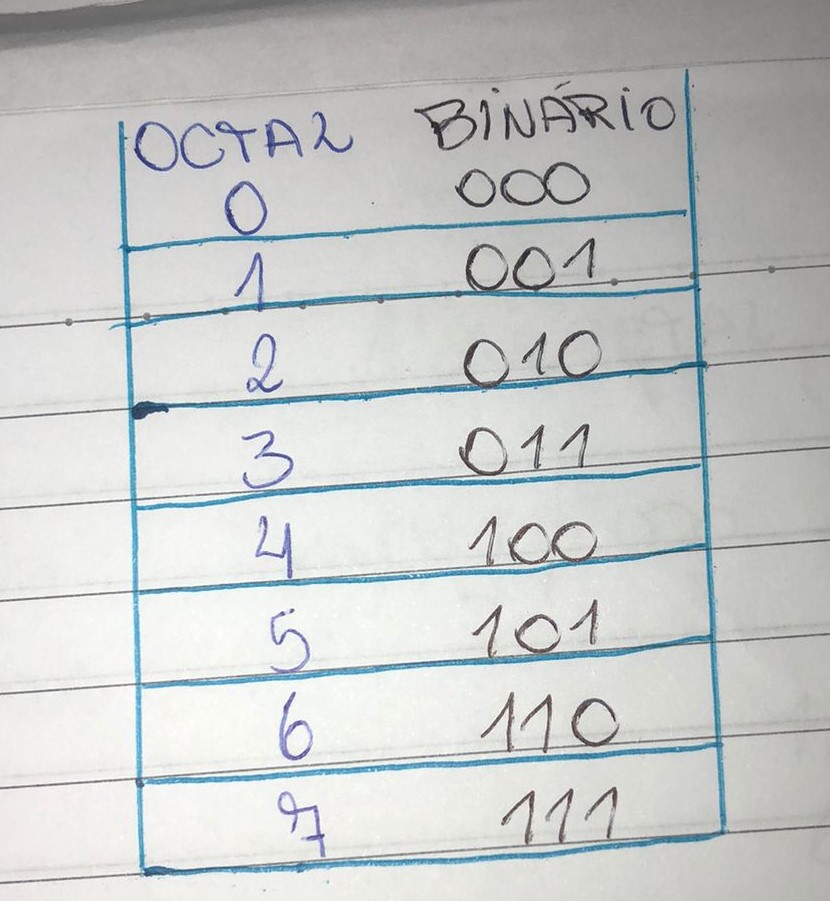 OCTAL BINÁRIO
0 000
1 001
2 010
3 011
4 100
5 101
6 110
7 111